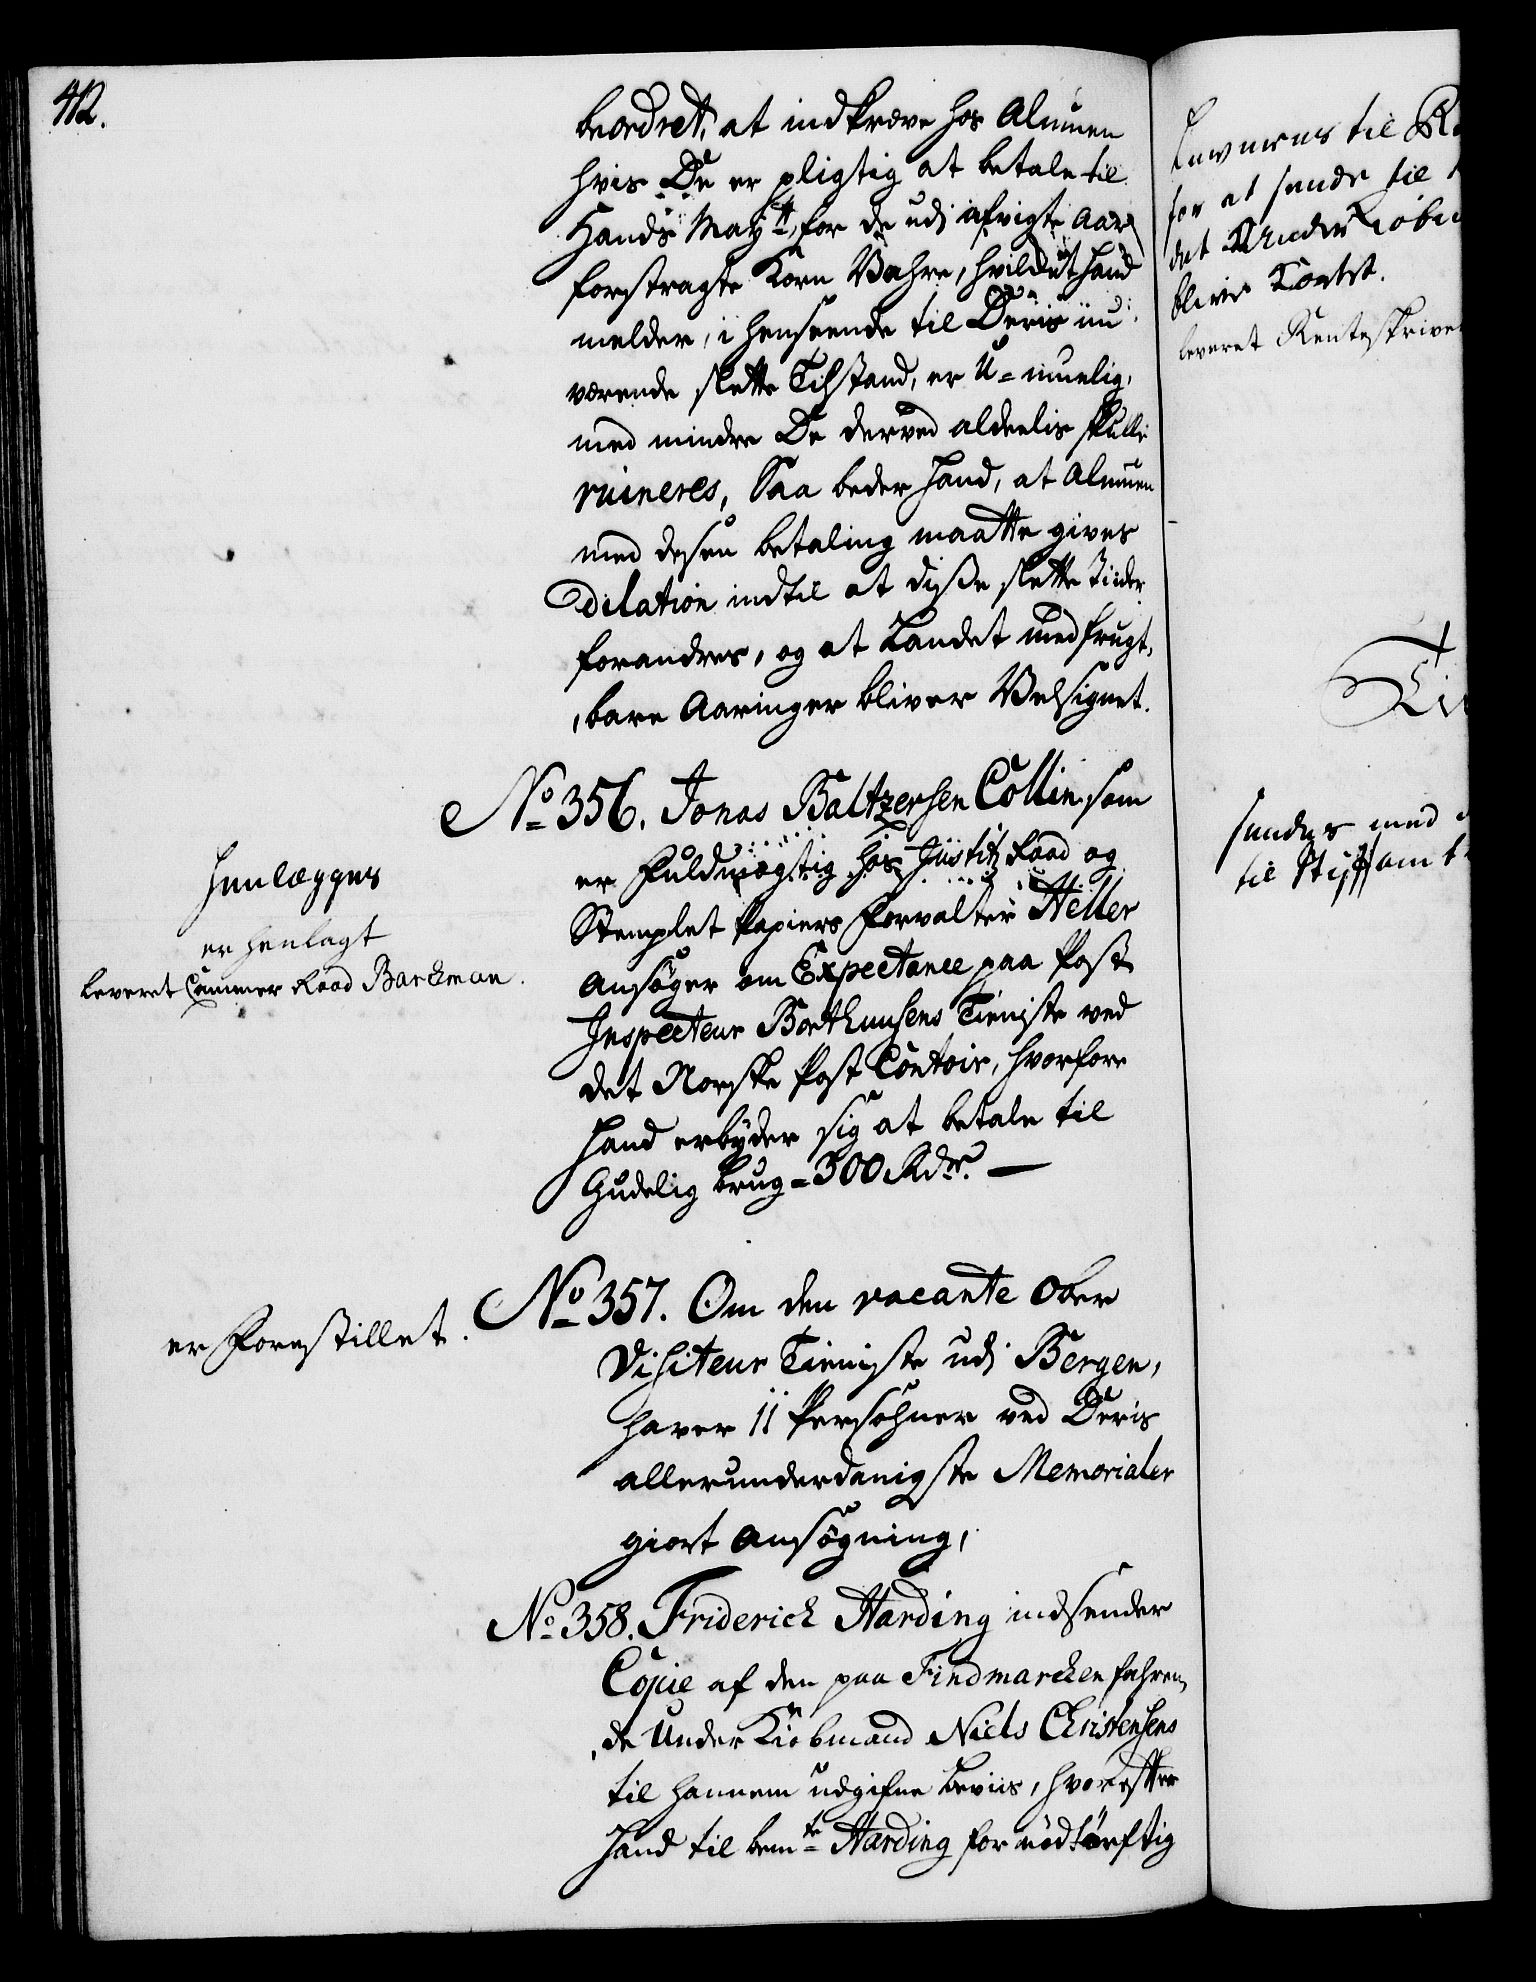 412.
beordret, at indkræve hos Almuen
hvis De er pligtig at betale til
Hands May.tt for de udi afvigte Aar
forstragte Korn Vahre, hvilcket hand
melder, i henseende til Deris nu
værende slette Tilstand, er U-muelig,
med mindre De derved aldeelis skulle
ruineres, Saa beder hand, at Almuen
med desen betaling maatte gives
Dilation indtil at disse slette Tiider
forandres, og at Landet med frugt,
,bare Aaringer bliver Velsignet.
No 356. Jonas Baltzersen Collin som
er Fuldmægtig hos Justitz Raad og
Stemplet Papiers Forvalter Heller
Ansøger om Expectance paa Post
Inspecteur Borthunsens Tieniste ved
det Norske Post Contoir, hvorfore
hand erbyder sig at betale til
Gudelig brug = 300 Rdr. —
Henlægges
er henlagt
leveret Cammer Raad Barckman.
No 357. Om den vacante Ober
Visiteur Tieniste udi Bergen,
haver 11 Persohner ved Deris
allerunderdanigste Memorialer
giort Ansøgning,
er Forestillet.
No 358. Friderich Harding indsender
Copie af den paa Findmarcken fahren,
,de Under Kiøbmand Niels Christensens
til hannem udgifne Beviis, hvorefter
hand til bemte Harding for nødtørftig
til R
for at sende til
det Under Kiøbm
bliver
leveret Renteskriver
sendes med
til Stiftamt